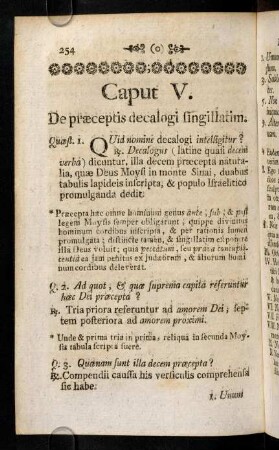 254 (o)
Caput V.
De præceptis decalogi singillatim.
Quæst. 1. QUid nomine decalogi intelligitur?
℞. Decalogus (latine quasi decem
verba) dicuntur, illa decem præcepta natura-
lia, quæ Deus Moysi in monte Sinai, duabus
tabulis lapideis inscripta, & populo Israëlitico
promulganda dedit:
* Præcepta hæc omne hominum genus ante, sub, & post
legem Moysis semper obligarunt; quippe divinitus
hominum cordibus inscripta, & per rationis lumen
promulgata; distincte tamen, & singillatim exponere
illa Deus voluit; quia
tia ea jam penitus ex judæorum, & aliorum homi-
num cordibus deleverat.
Q. 2. Ad quot, & quæ suprema capita referuntur
hæc Dei præcepta?
℞. Tria priora referuntur ad amorem Dei; sep-
tem posteriora ad amorem proximi.
* Unde & prima tria in prima, reliqua in secunda Moy-
sis tabula scripta fuere.
Q. 3. Quænam sunt illa decem præcepta?
℞. Compendii caussa his versiculis comprehensa
sic habe:
1. Unum